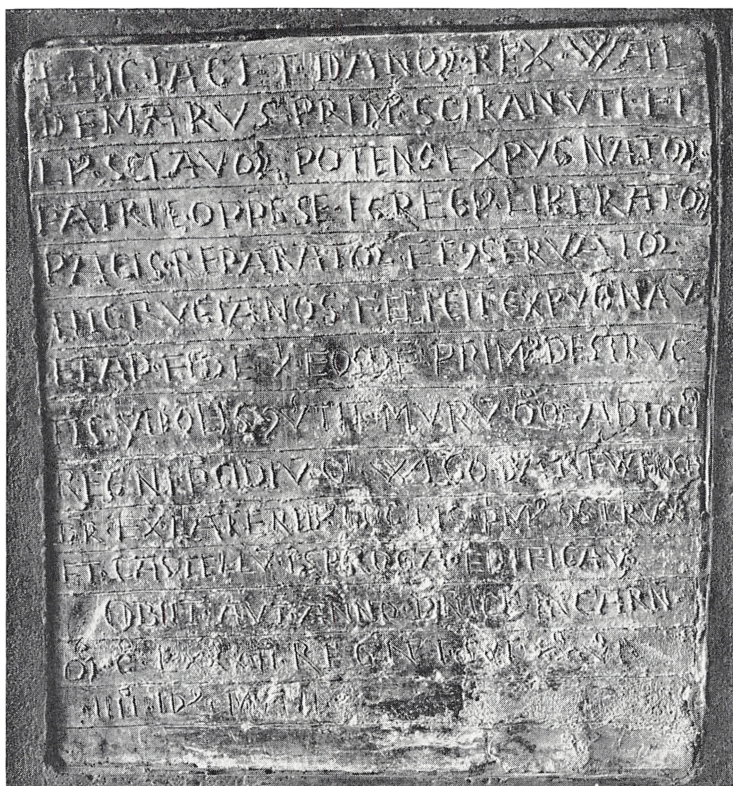 + HIC·IACET·DANOꝜ·REX·WAL
DEMARVS·PRIMꝰ·SCI KANVTI·FI
LIꝰ·SCLAVOꝜ·POTENS·EXPVGNATOꝜ·
PATRIE OPPSSE·EGREGIꝰ·LIBERATOꝜ
PACIS·REPARATOꝜ·ET ꝯSERVATOꝜ·
HIC RVGIANOS FELICIT EXPVGNAV·
ET AD·FIDE X EOSDE PRIMꝰ DESTRVC
TIS·YDOLIS ꝯVTIT·MVRV·QQ·AD TOCIꝰ
REGNI WLGO DANEWERCH
DR·EX LATERIB COCTIS PMꝰ ꝯSTRVX
ET·CASTELLV I SPROGA·EDIFICAV·
OBIIT·AVT·ANNO·DNICE·INCARN·
REGNI SVI XXVI
IIII·IDꝰ·MAII